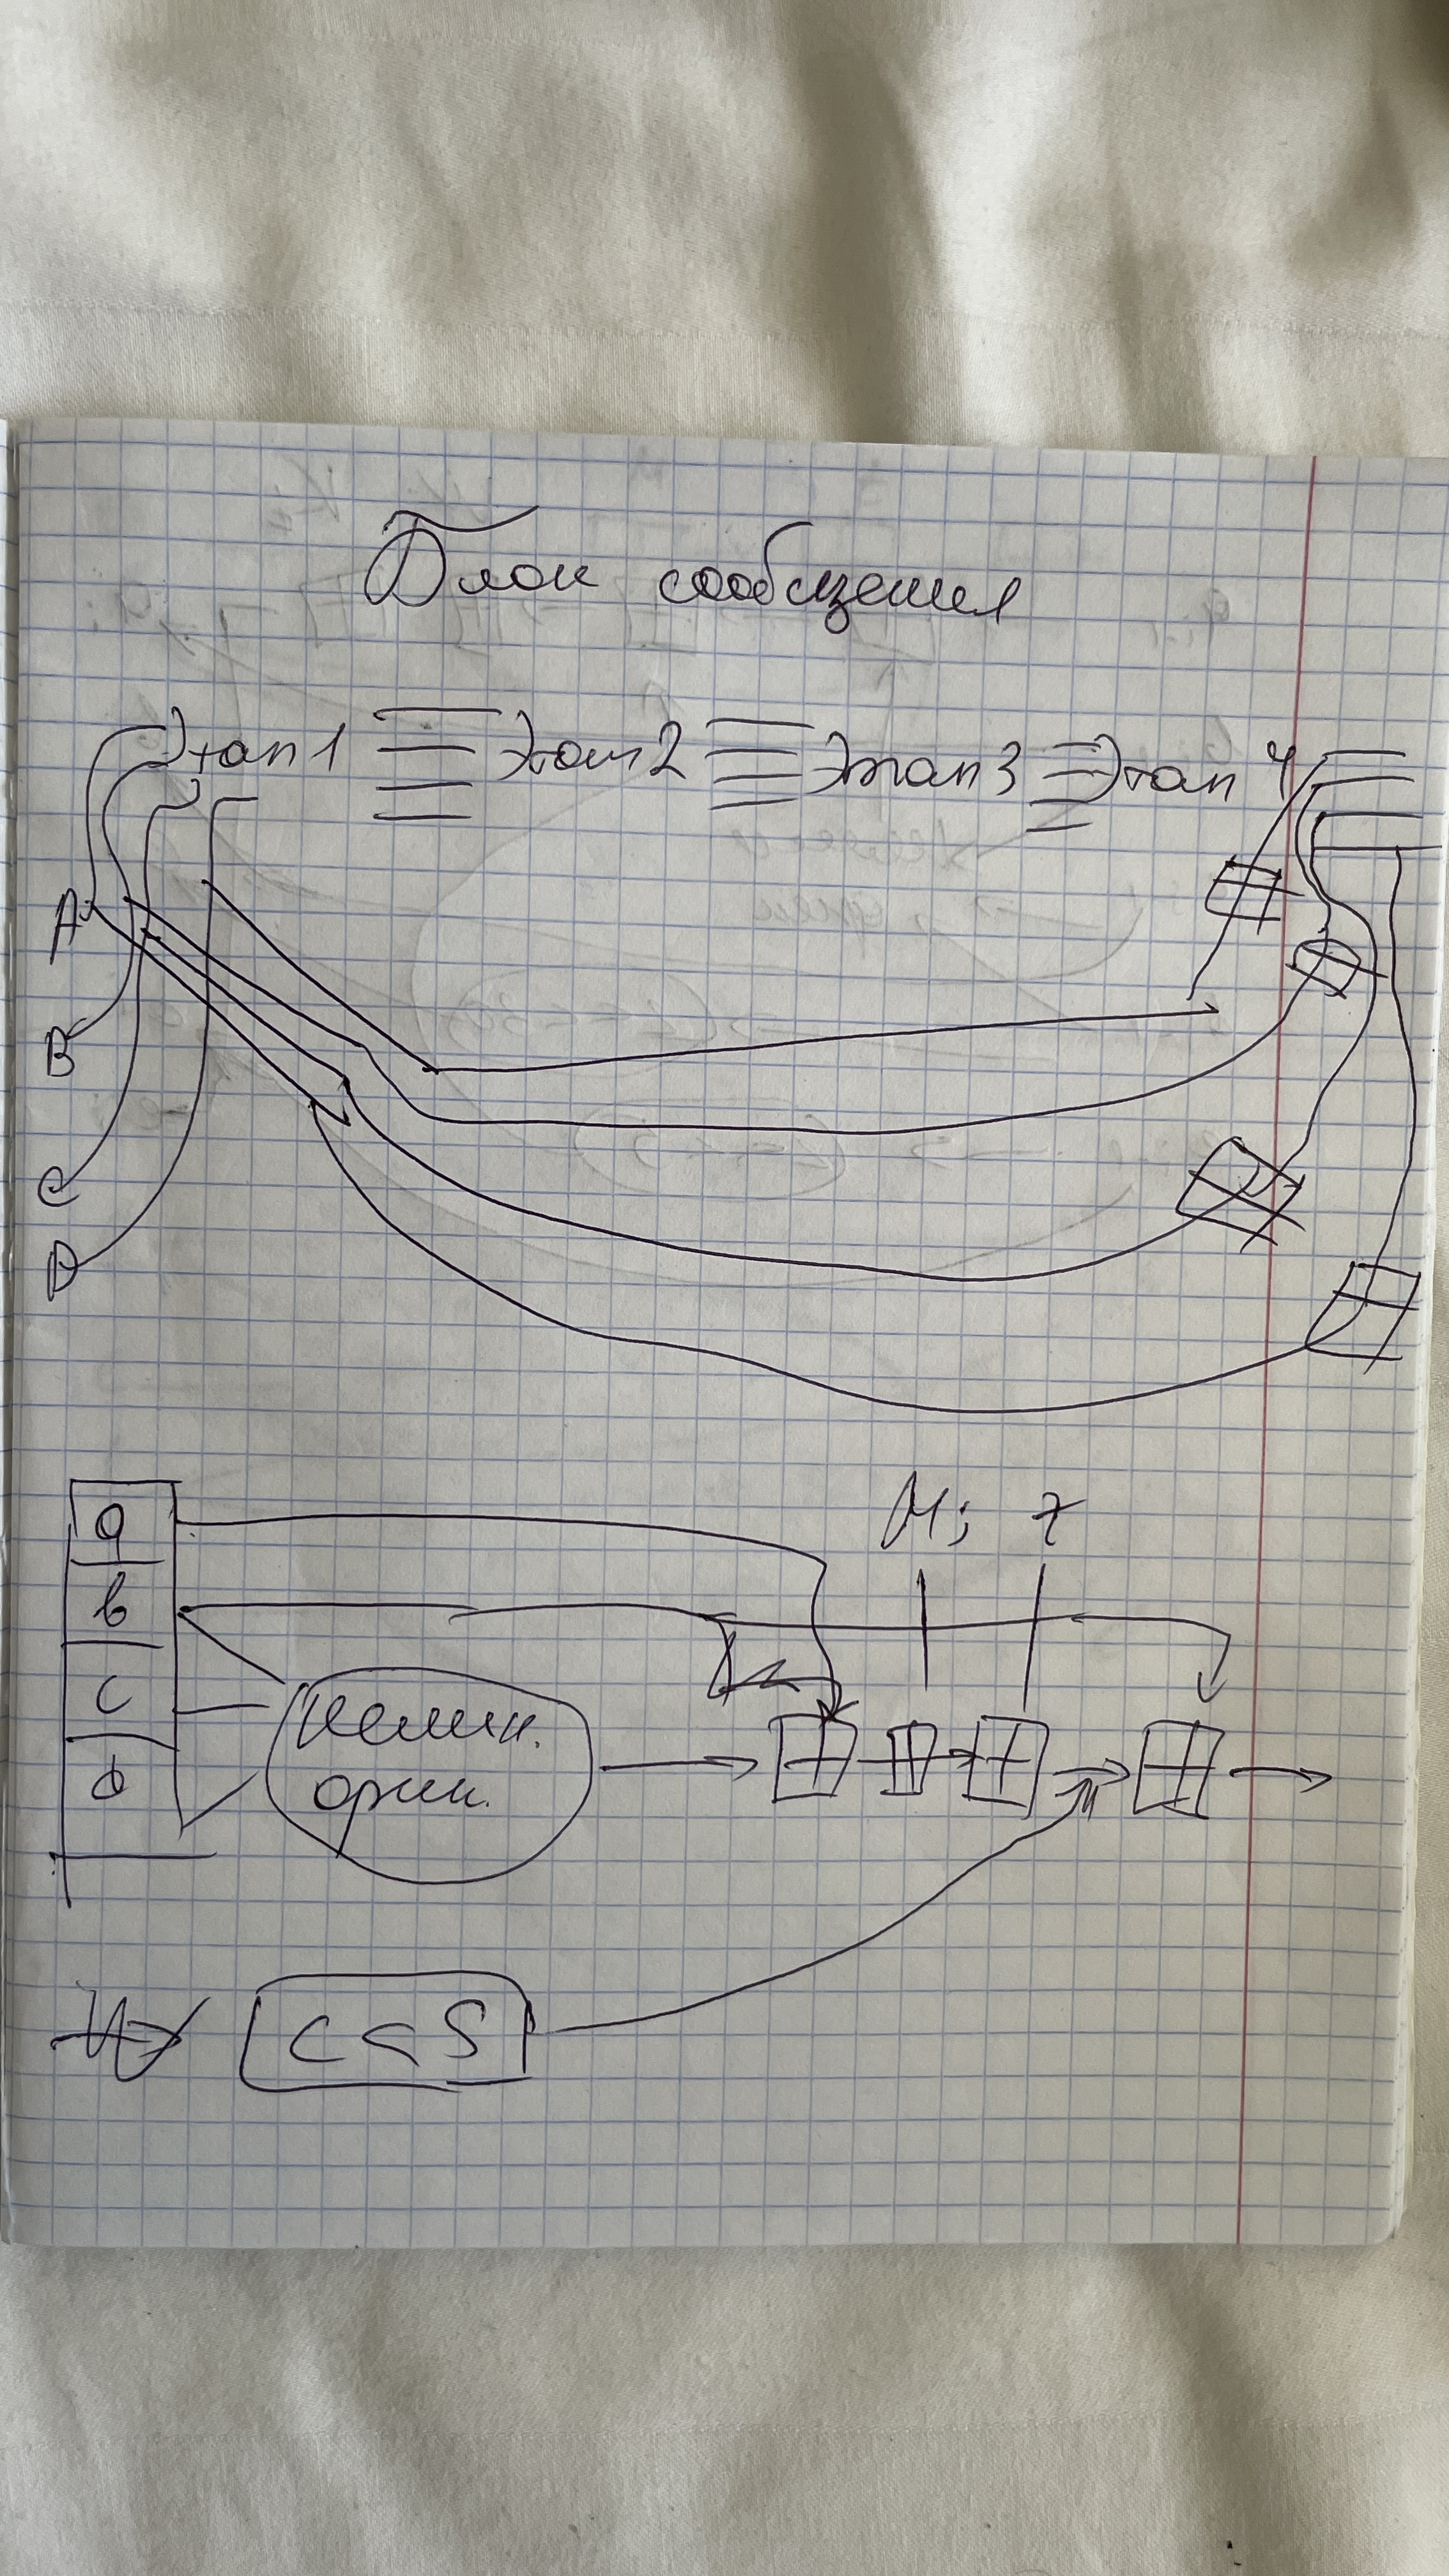 Блок сообщения
Этап 1 Этап 2 Этап 3 Этап 4
A
B
C
D
a
b
c
d
нелин.
M; t